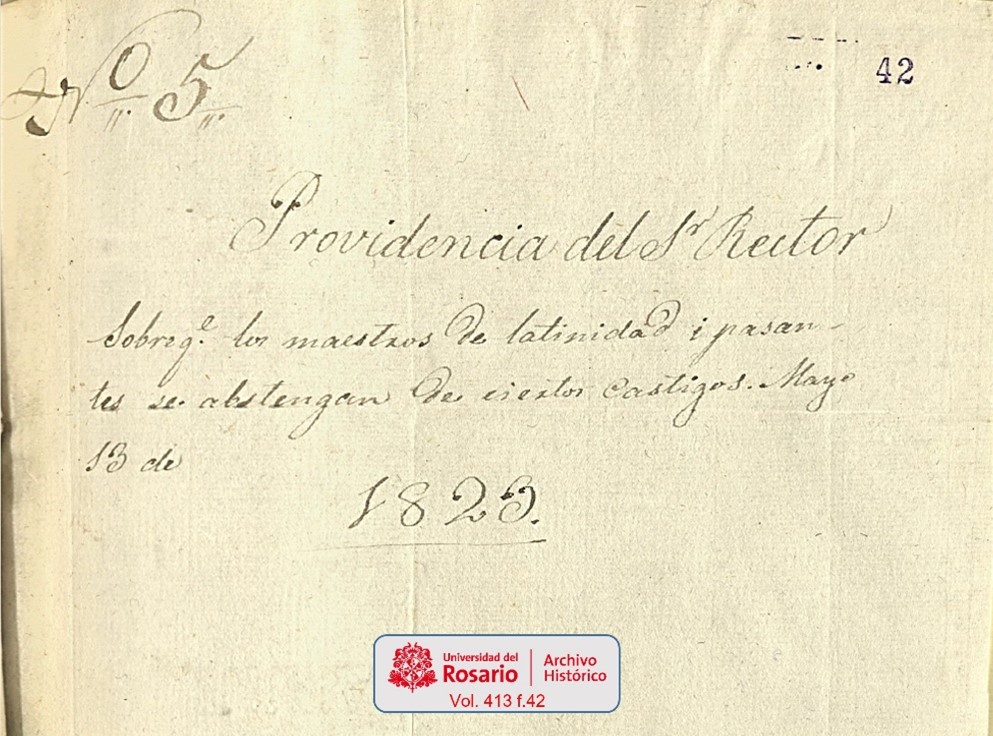 Nº 5
42
Providencia del Sr Rector
Sobre q.e los maestros de latinidad i pasan-
tes se abstengan de ciertos castigos. Mayo
13 de
1823.
Universidad del
Rosario
Archivo
Histórico
Vol. 413 f.42